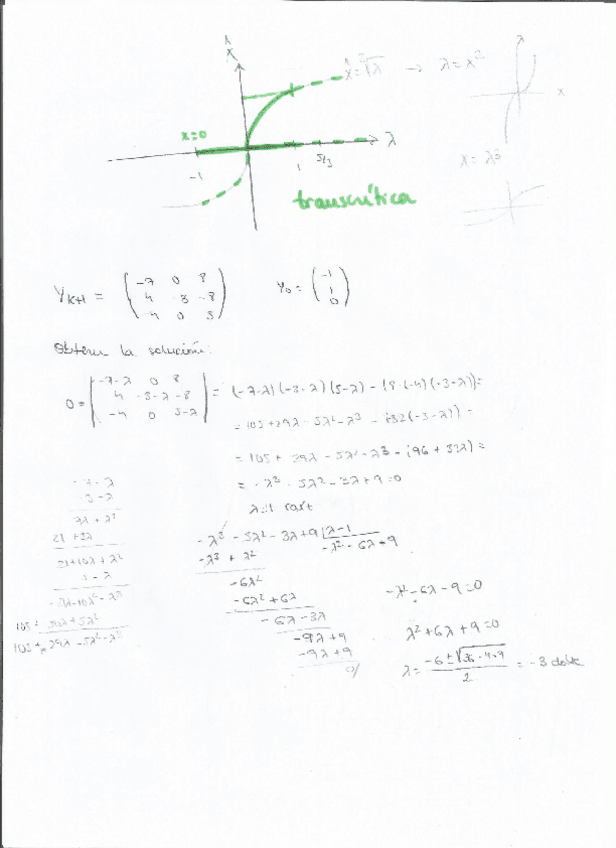 x
x=√λ → λ=x²
λ
x=0
λ
x
-1
1
5/3
x = λ³
transcrítica
Y_{K+1} = ( -7 0 8
4 -3 -8
-4 0 5 )
Y₀ = ( -1
1
0 )
Obtener la solución:
0 = | -7-λ 0 8
4 -3-λ -8
-4 0 5-λ | = (-7-λ)(-3-λ)(5-λ) - (8·(-4)(-3-λ)) =
= 105+29λ-5λ²-λ³ - (-32(-3-λ)) =
= 105 + 29λ - 5λ² - λ³ - (96 + 32λ) =
= -λ³ - 5λ² - 3λ + 9 = 0
λ=1 raíz
-7-λ
-3-λ
7λ + λ²
21 + 3λ
21+10λ+λ²
5-λ
-21λ-10λ²-λ³
105 + 50λ + 5λ²
105 + 29λ - 5λ² - λ³
-λ³ - 5λ² - 3λ + 9 | λ-1
-λ³ + λ²
-λ² - 6λ - 9
-6λ²
-6λ² + 6λ
-6λ - 3λ
-9λ + 9
-9λ + 9
0/
-λ² - 6λ - 9 = 0
λ² + 6λ + 9 = 0
λ = (-6 ± √(36 - 4·9)) / 2 = -3 doble